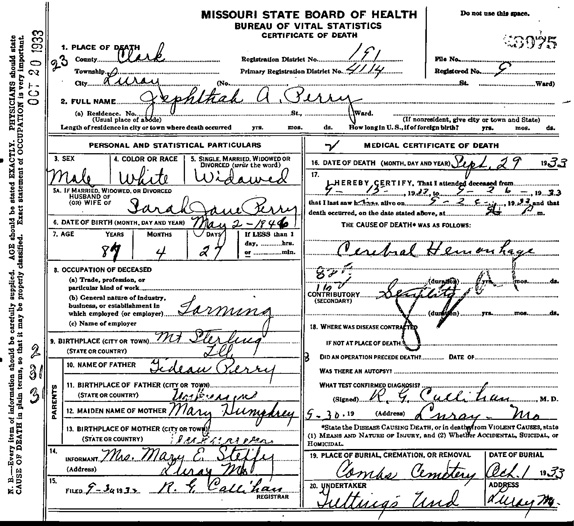 MISSOURI STATE BOARD OF HEALTH
BUREAU OF VITAL STATISTICS
CERTIFICATE OF DEATH
Do not use this space.
OCT 20 1933
1. PLACE OF DEATH
23 County Clark Registration District No. 191 File No.
Township Primary Registration District No. 4114 Registered No. 9
City Luray (No. St. Ward)
2. FULL NAME Jephthah A. Perry
(a) Residence. No. St., Ward.
(Usual place of abode) (If nonresident, give city or town and State)
Length of residence in city or town where death occurred yrs. mos. ds. How long in U. S., if of foreign birth? yrs. mos. ds.
PERSONAL AND STATISTICAL PARTICULARS
3. SEX 4. COLOR OR RACE 5. SINGLE, MARRIED, WIDOWED OR DIVORCED (write the word)
Male White Widowed
5A. IF MARRIED, WIDOWED, OR DIVORCED
HUSBAND OF
(OR) WIFE OF Sarah Jane Perry
6. DATE OF BIRTH (MONTH, DAY AND YEAR) May 2-1846
7. AGE YEARS MONTHS DAYS If LESS than 1 day, hrs. or min.
87 4 27
8. OCCUPATION OF DECEASED
(a) Trade, profession, or particular kind of work
(b) General nature of industry, business, or establishment in which employed (or employer) Farming
(c) Name of employer
9. BIRTHPLACE (CITY OR TOWN) Mt Sterling
(STATE OR COUNTRY) Ill
PARENTS
10. NAME OF FATHER Gideon Perry
11. BIRTHPLACE OF FATHER (CITY OR TOWN)
(STATE OR COUNTRY) Unknown
12. MAIDEN NAME OF MOTHER Mary Humphrey
13. BIRTHPLACE OF MOTHER (CITY OR TOWN)
(STATE OR COUNTRY) Unknown
14. INFORMANT Mrs. Mary E. Steffy
(Address) Luray Mo.
15. FILED 9-30 1933 R. G. Callihan
REGISTRAR
MEDICAL CERTIFICATE OF DEATH
16. DATE OF DEATH (MONTH, DAY AND YEAR) Sept. 29 1933
17. I HEREBY CERTIFY, That I attended deceased from
that I last saw alive on and that
death occurred, on the date stated above, at m.
THE CAUSE OF DEATH* WAS AS FOLLOWS:
Cerebral Hemorrhage
(duration) yrs. mos. ds.
CONTRIBUTORY Senility
(SECONDARY)
(duration) yrs. mos. ds.
18. WHERE WAS DISEASE CONTRACTED
IF NOT AT PLACE OF DEATH?
DID AN OPERATION PRECEDE DEATH? DATE OF
WAS THERE AN AUTOPSY?
WHAT TEST CONFIRMED DIAGNOSIS?
(Signed) R. G. Callihan, M. D.
9-30, 19 (Address) Luray - Mo
*State the DISEASE CAUSING DEATH, or in deaths from VIOLENT CAUSES, state
(1) MEANS AND NATURE OF INJURY, and (2) Whether ACCIDENTAL, SUICIDAL, or
HOMICIDAL.
19. PLACE OF BURIAL, CREMATION, OR REMOVAL DATE OF BURIAL
Combs Cemetery Oct. 1 1933
20. UNDERTAKER ADDRESS
Und Luray Mo.
N. B.—Every item of information should be carefully supplied. AGE should be stated EXACTLY. PHYSICIANS should state
CAUSE OF DEATH in plain terms, so that it may be properly classified. Exact statement of OCCUPATION is very important.